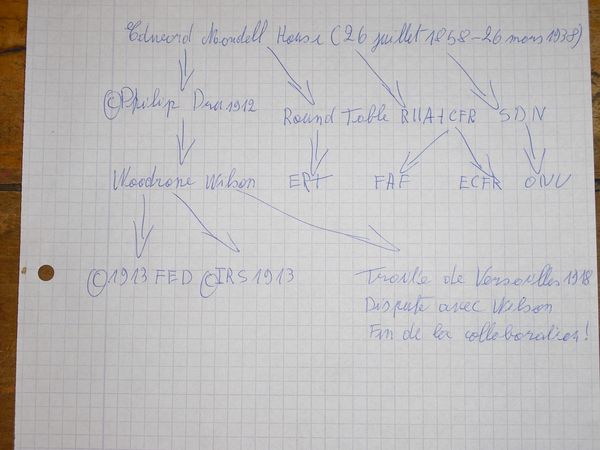 Edward Mondell House (26 juillet 1858-26 mars 1938)
©Philip Dru 1912 Round Table RIIA+CFR SDN
Woodrone Wilson ERT FAF ECFR ONU
©1913 FED ©IRS 1913 Traité de Versailles 1918
Dispute avec Wilson
Fin de la collaboration!